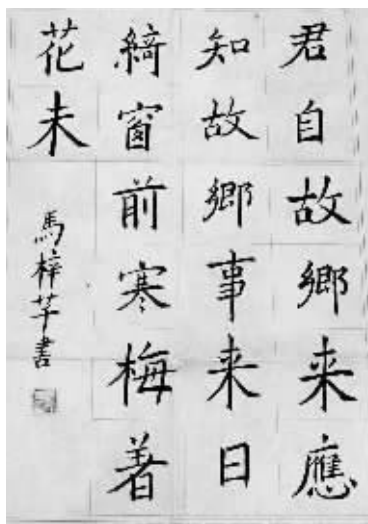 君自故鄉来應
知故鄉事来日
綺窗前寒梅着
花未
馬梓芊書